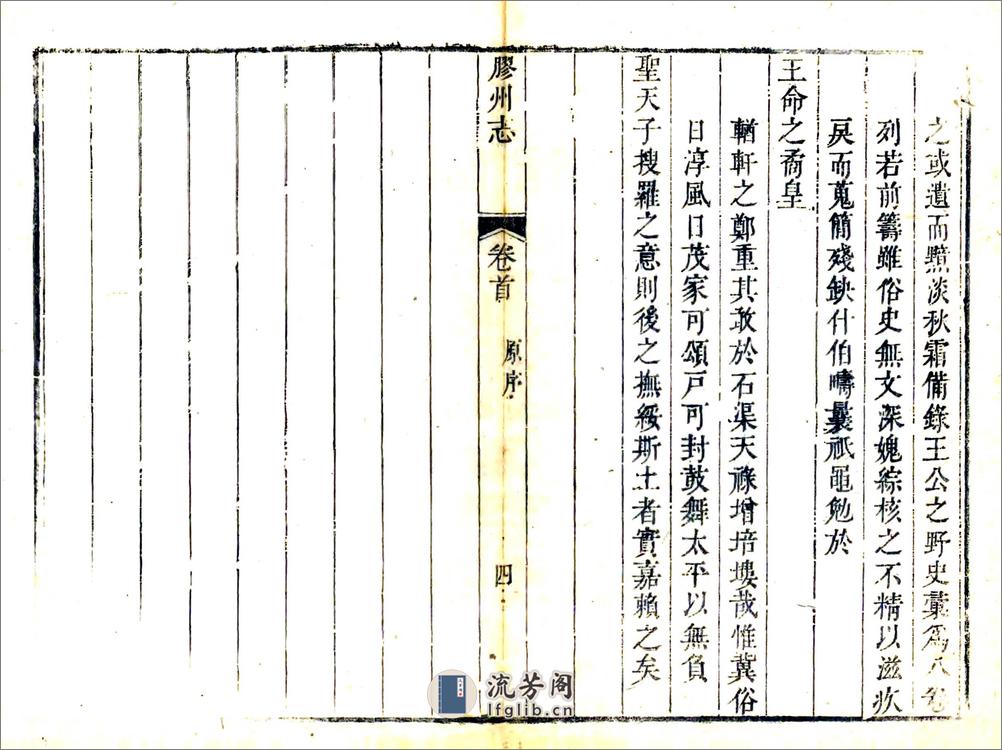 之或遺而黯淡秋霜備錄王公之野史彙爲八卷
列若前籌雖俗史無文深媿綜核之不精以滋疚
戾而蒐簡殘缺什伯疇曩祇黽勉於
王命之矞皇
輶軒之鄭重其敢於石渠天祿增培塿哉惟冀俗
日淳風日茂家可頌戸可封鼓舞太平以無負
聖天子搜羅之意則後之撫綏斯土者實嘉賴之矣
膠州志
卷首
原序
四
流芳阁
lfglib.cn